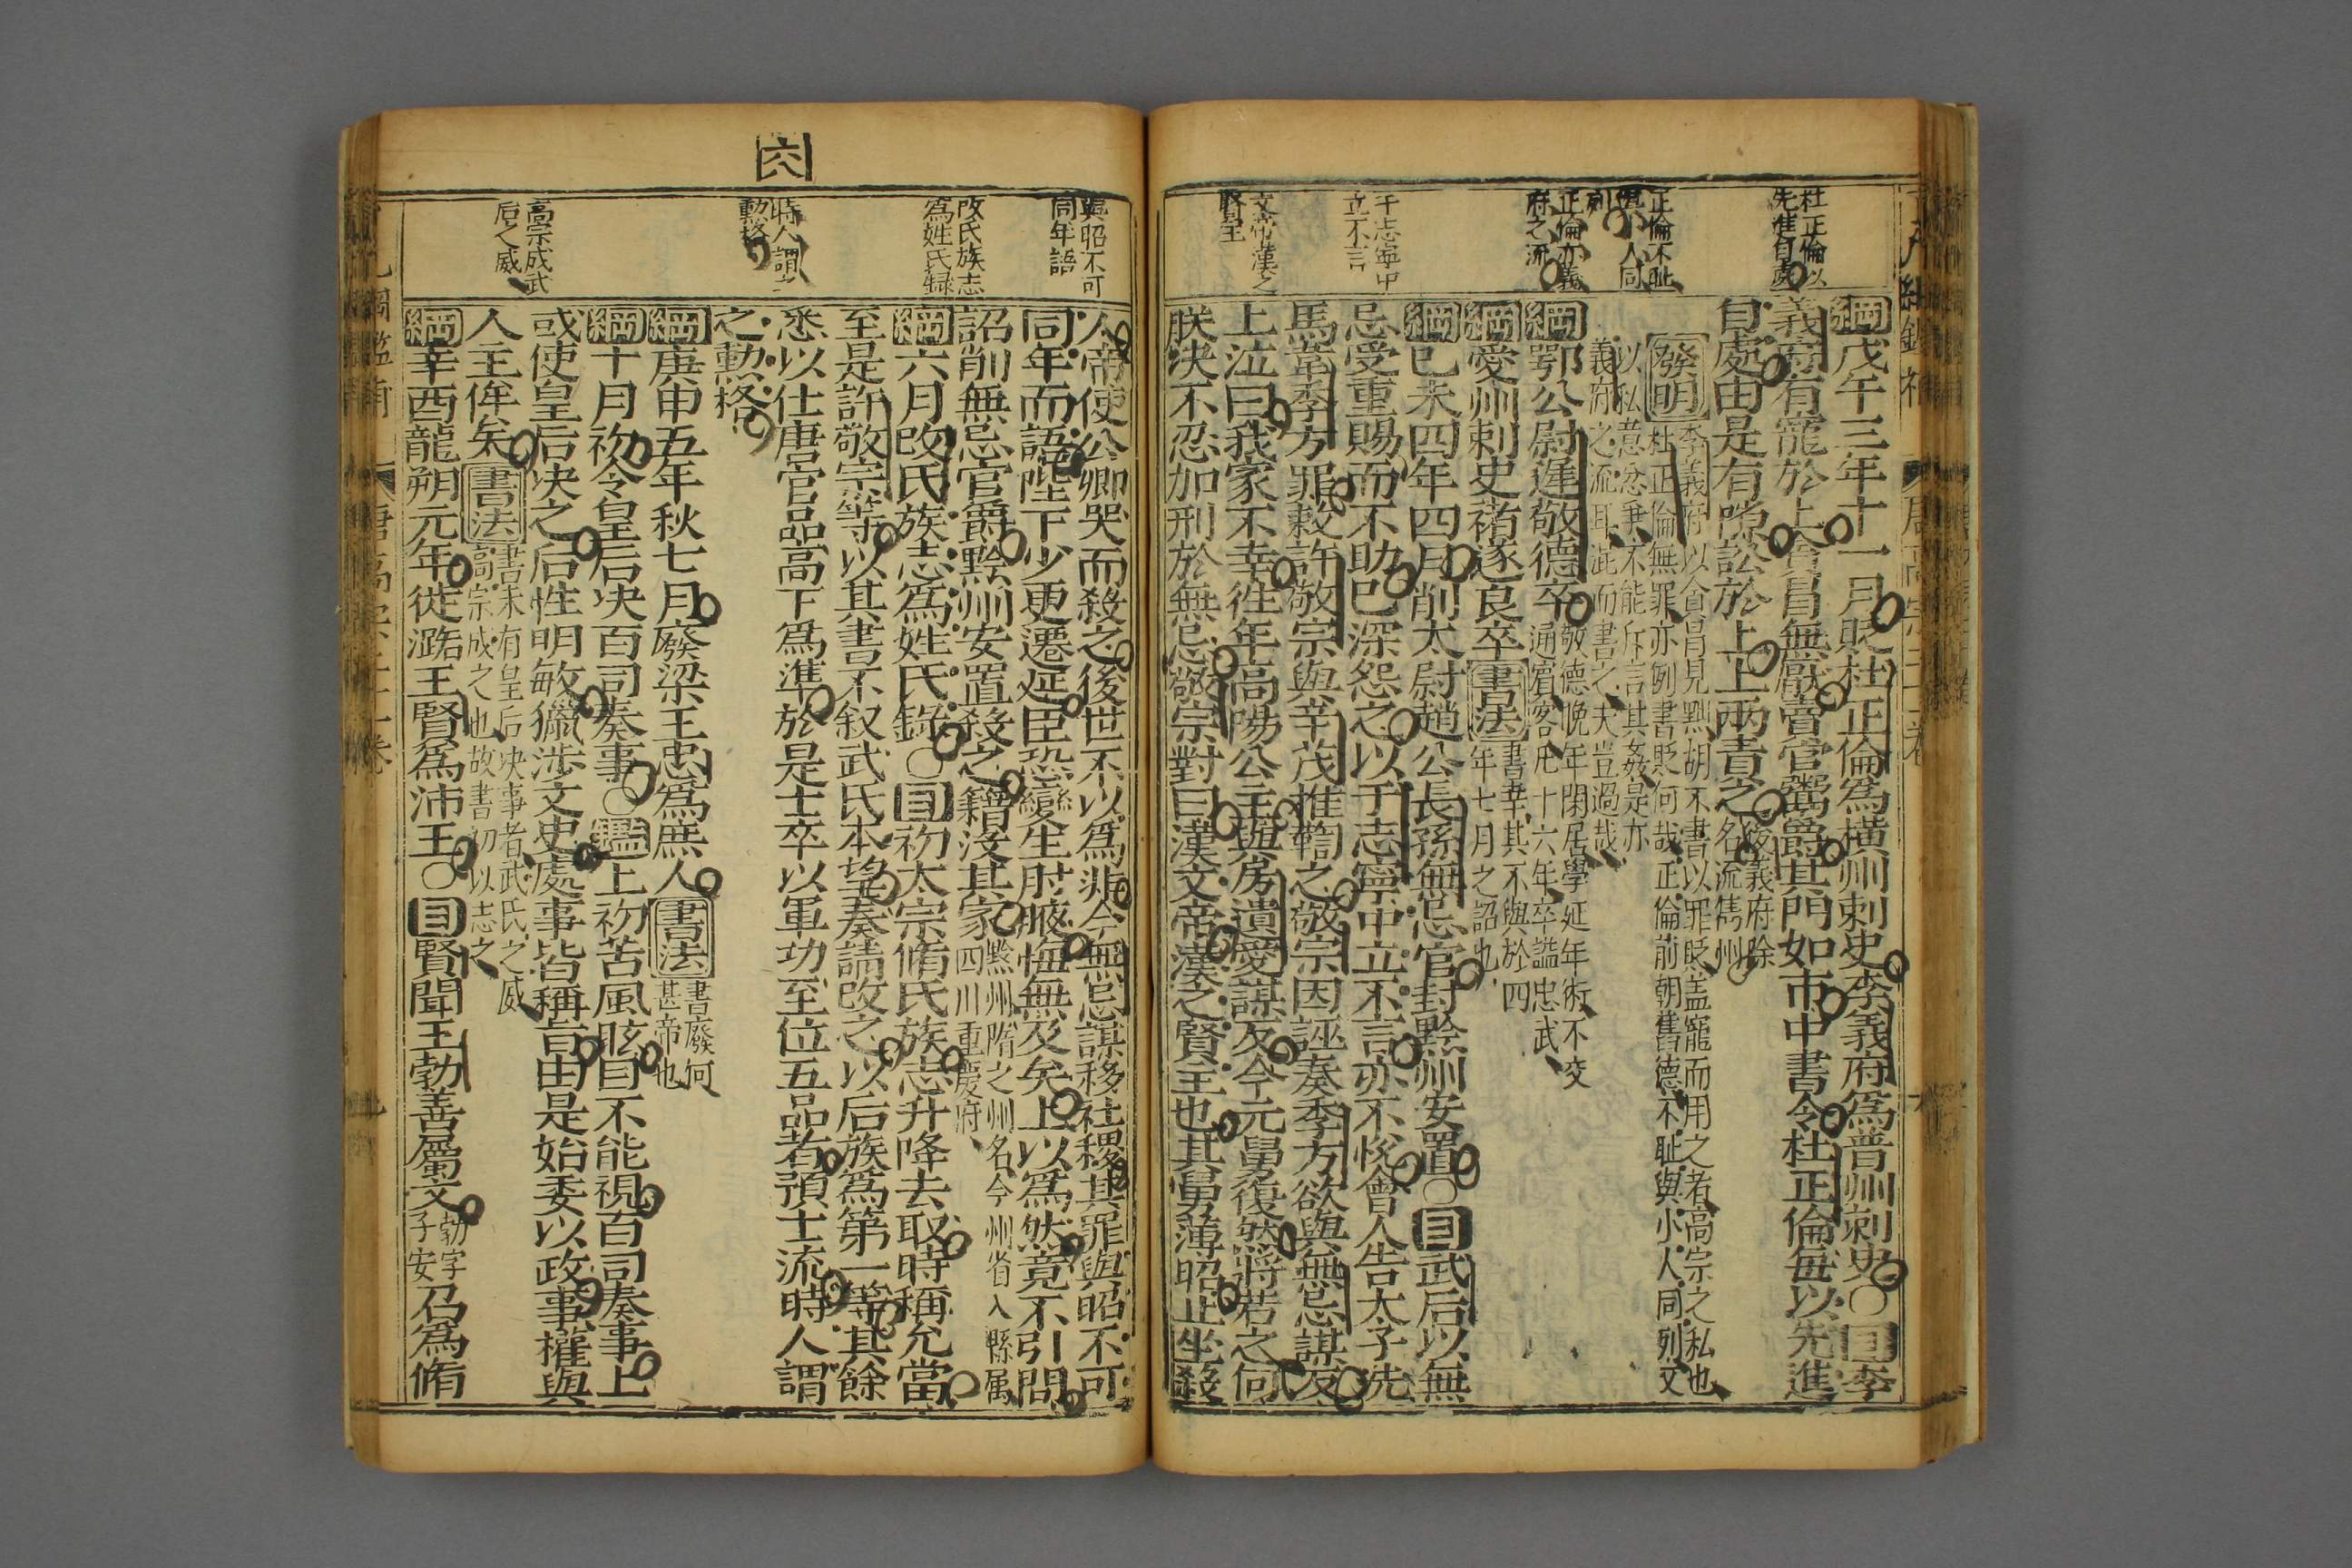 杜正倫以
先進自處
正倫不耻
與小人同
列
正倫亦義
府之流
于志寧中
立不言
文帝漢之
賢主
綱戊午三年十一月貶杜正倫為橫州刺史李義府為普州刺史○目李
義府有寵於上賣官鬻爵其門如市中書令杜正倫每以先進
自處由是有隙訟於上上兩責之後義府除
名流雋州
發明李義府以貪冒見黜胡不書以罪貶盖寵而用之者高宗之私也
杜正倫無罪亦例書貶何哉正倫前朝舊德不耻與小人同列文
以私意忿爭不能斥言其姦是亦
義府之流耳泚而書之夫豈過哉
綱鄂公尉遲敬德卒敬德晚年閑居學延年術不交
通賓客凡十六年卒謚忠武
綱愛州刺史褚遂良卒書法書卒其不與於四
年七月之詔也
綱已未四年四月削太尉趙公長孫無忌官封黔州安置○目武后以無
忌受重賜而不助已深怨之以于志寧中立不言亦不悅會人告太子洗
馬韋季方罪敕許敬宗與辛茂推鞫之敬宗因誣奏季方欲與無忌謀反
上泣曰我家不幸徃年高陽公主與房遺愛謀反今元舅復然將若之何
朕決不忍加刑於無忌敬宗對曰漢文帝漢之賢主也其舅薄昭止坐殺
六
與昭不可
同年語
改氏族志
為姓氏録
時人謂之
勲格
高宗成武
后之威
人帝使公卿哭而殺之後世不以為非今無忌謀移社稷其罪與昭不可
同年而語陛下少更遷延臣恐變生肘腋悔無及矣上以為然竟不引問
詔削無忌官爵黔州安置殺之籍沒其家黔州隋之州名今州省入縣属
四川重慶府
綱六月改氏族志為姓氏錄○目初太宗脩氏族志升降去取時稱允當
至是許敬宗等以其書不叙武氏本望奏請改之以后族為第一等其餘
悉以仕唐官品高下為準於是士卒以軍功至位五品者預士流時人謂
之勲格
綱庚申五年秋七月廢梁王忠為庶人書法書廢何
甚帝也
綱十月初令皇后決百司奏事○鑑上初苦風眩目不能視百司奏事上
或使皇后決之后性明敏獵涉文史處事皆稱旨由是始委以政事權與
人主侔矣書法書未有皇后決事者武氏之威
高宗成之也故書初以志之
綱辛酉龍朔元年徙潞王賢為沛王○目賢聞王勃善屬文勃字
子安召為脩